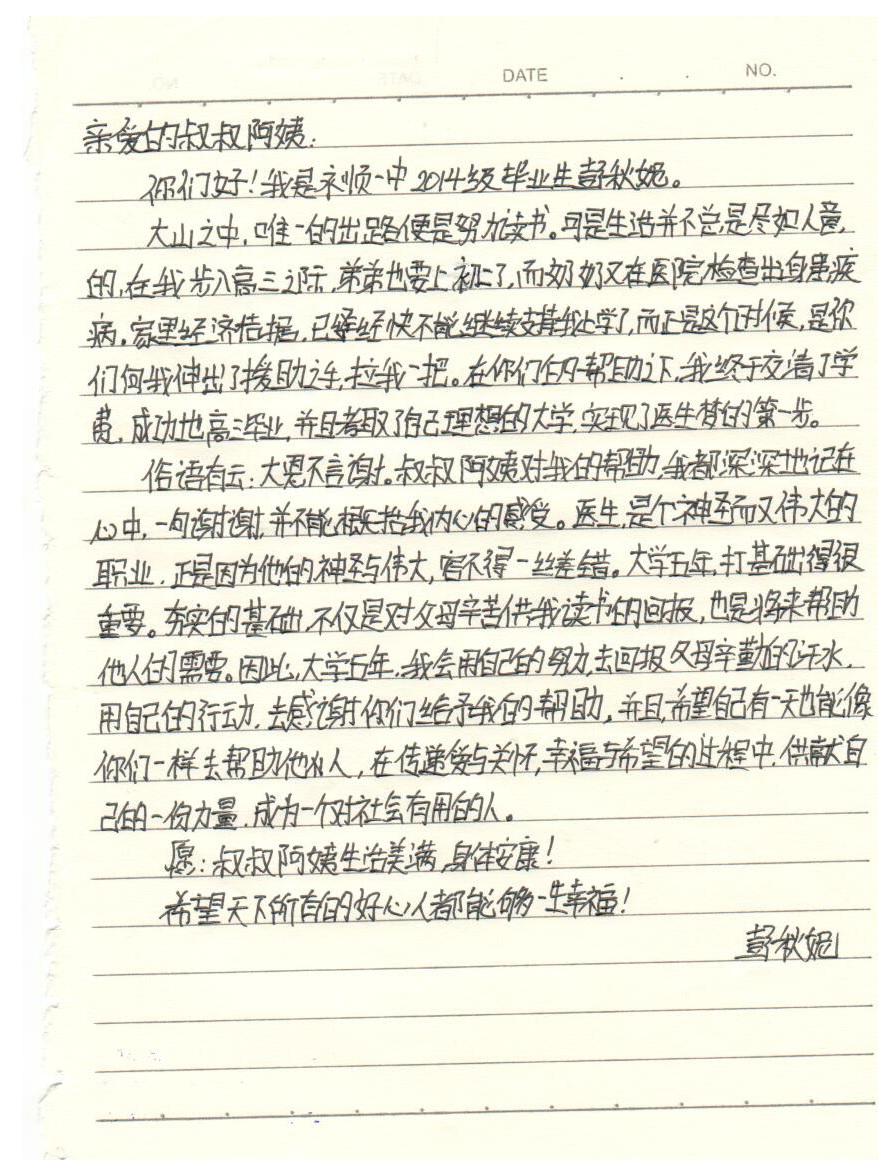 DATE NO.
亲爱的叔叔阿姨:
你们好!我是永顺一中2014级毕业生彭秋妮。
大山之中,唯一的出路便是努力读书。可是生活并不总是尽如人意
的,在我步入高三之际,弟弟也要上初三了,而奶奶又在医院检查出身患疾
病。家里经济拮据,已经快不能继续支持我上学了,而正是这个时候,是你
们向我伸出了援助之手,拉我一把。在你们的帮助之下,我终于交清了学
费,成功地高三毕业,并且考取了自己理想的大学,实现了医生梦的第一步。
俗语有云:大恩不言谢。叔叔阿姨对我的帮助,我都深深地记在
心中,一句谢谢,并不能概括我内心的感受。医生,是个神圣而又伟大的
职业,正是因为他的神圣与伟大,容不得一丝差错。大学五年,打基础得很
重要。夯实的基础,不仅是对父母辛苦供我读书的回报,也是将来帮助
他人的需要。因此,大学五年,我会用自己的努力,去回报父母辛勤的汗水,
用自己的行动,去感谢你们给予我的帮助。并且,希望自己有一天也能像
你们一样去帮助他人,在传递爱与关怀,幸福与希望的过程中,供献自
己的一份力量,成为一个对社会有用的人。
愿:叔叔阿姨生活美满,身体安康!
希望天下所有的好心人都能够一生幸福!
彭秋妮